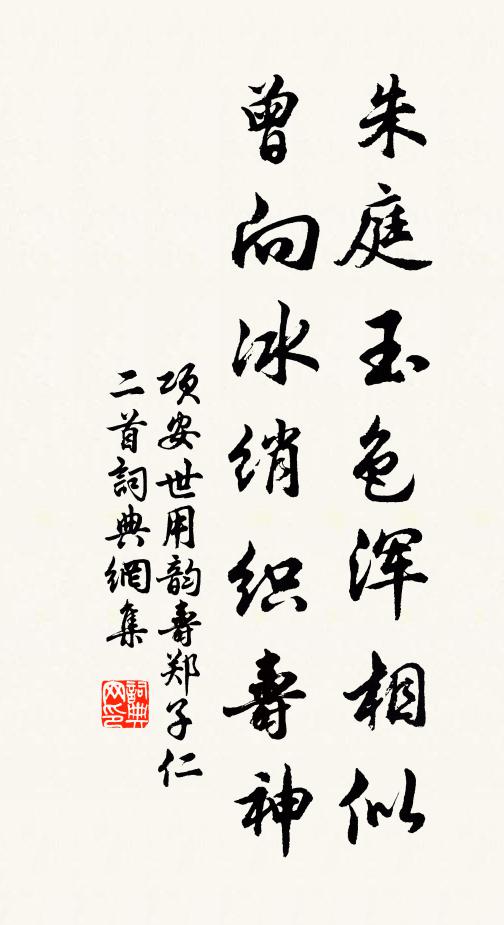 朱庭玉色浑相似
曾向冰绡织壽神
项安世用韵壽郑子仁
二首詞典網集
詞典网印